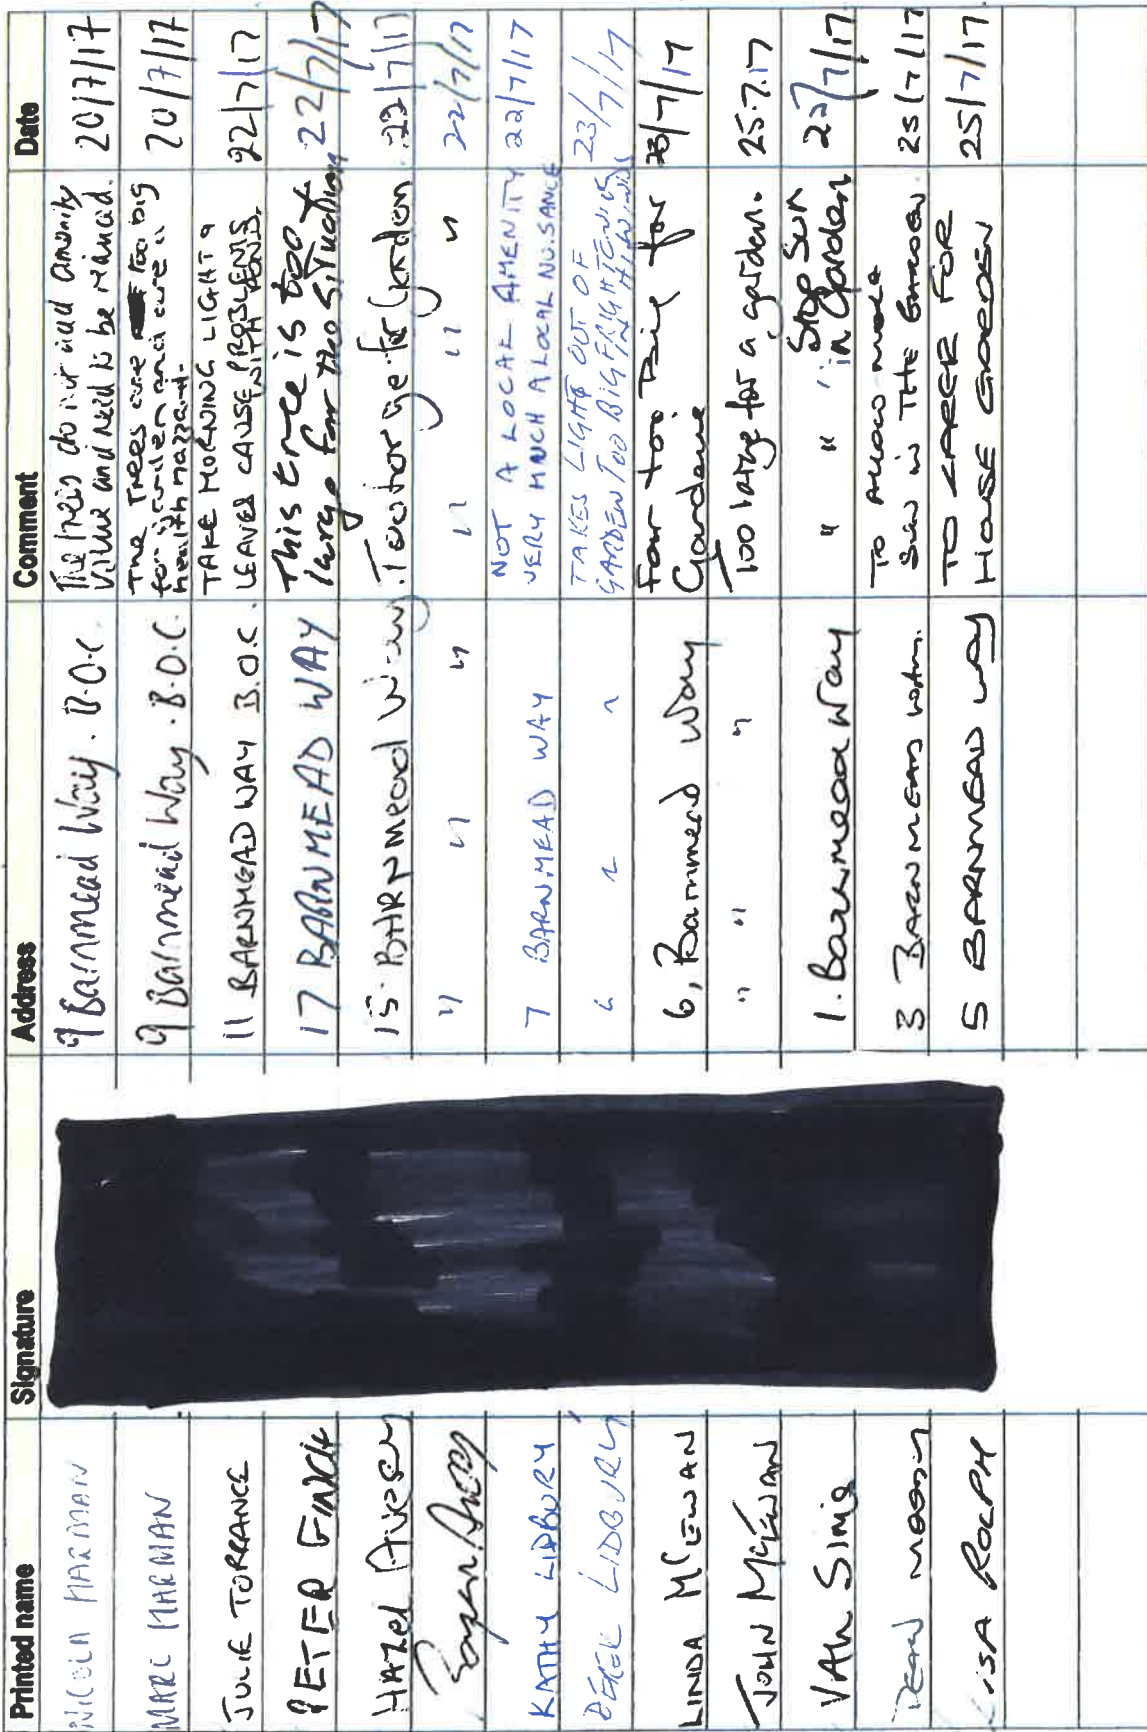 Printed name Signature Address Comment Date
NICOLA HARMAN 9 Barnmead Way. B.O.C. The trees do not add amenity 20/7/17
value and need to be reduced.
MARC HARMAN 9 Barnmead Way. B.O.C. The Trees are too big 20/7/17
for garden and are a
health hazzard.
JULIE TORRANCE 11 BARNMEAD WAY B.O.C. TAKE MORNING LIGHT & 22/7/17
LEAVES CAUSE PROBLEMS
WITH
PETER FINCH 17 BARNMEAD WAY This tree is too 22/7/17
large for the situation
Hazel 15 BARNMEAD Way Too large for Garden 22/7/17
" " " " " " 22/7/17
KATHY LIDBURY 7 BARNMEAD WAY NOT A LOCAL AMENITY 22/7/17
VERY MUCH A LOCAL NUISANCE
DEREK LIDBURY " " " TAKES LIGHT OUT OF 23/7/17
GARDEN TOO BIG FRIGHTENING
IN HI WINDS
LINDA McEWAN 6, Barnmead Way Far too Big for 23/7/17
Gardene
JOHN McEWAN " " " Too large for a garden. 25.7.17
VAL Sims 1. Barnmead Way " " " Stop Sun 22/7/17
in Garden
DEAN 3 BARNMEAD To ALLOW MORE 25/7/17
SUN IN THE GARDEN.
LISA ROLPH 5 BARNMEAD WAY TO LARGE FOR 25/7/17
HOUSE GARDEN